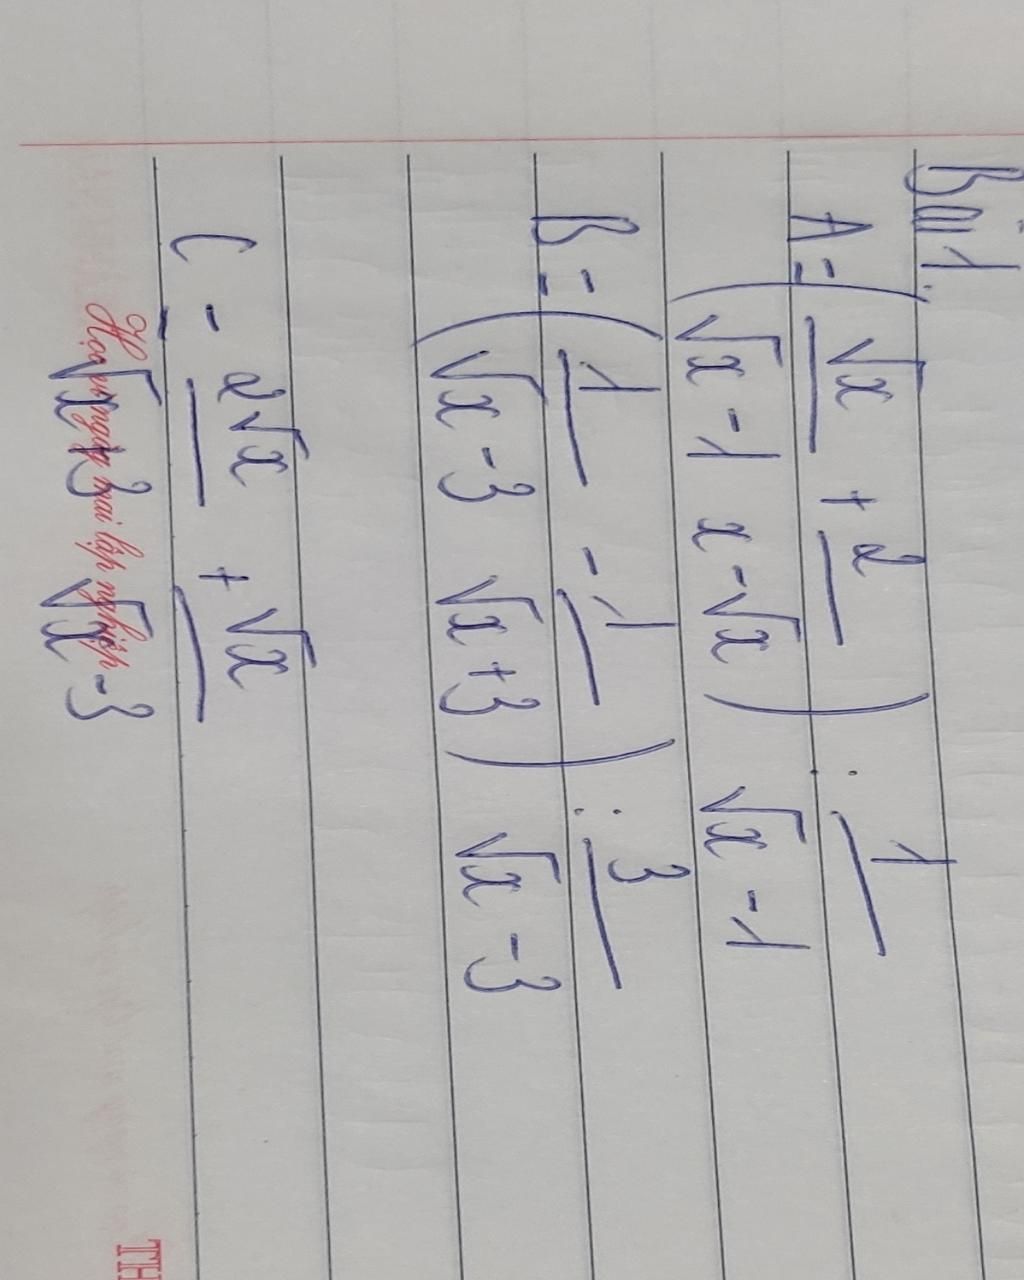 Bài 1.
A = ( √x / √x - 1 + 2 / x - √x ) : 1 / √x - 1
B = ( 1 / √x - 3 - 1 / √x + 3 ) : 3 / √x - 3
C = 2√x / √x + 3 + √x / √x - 3
Học vì ngày mai lập nghiệp
TH